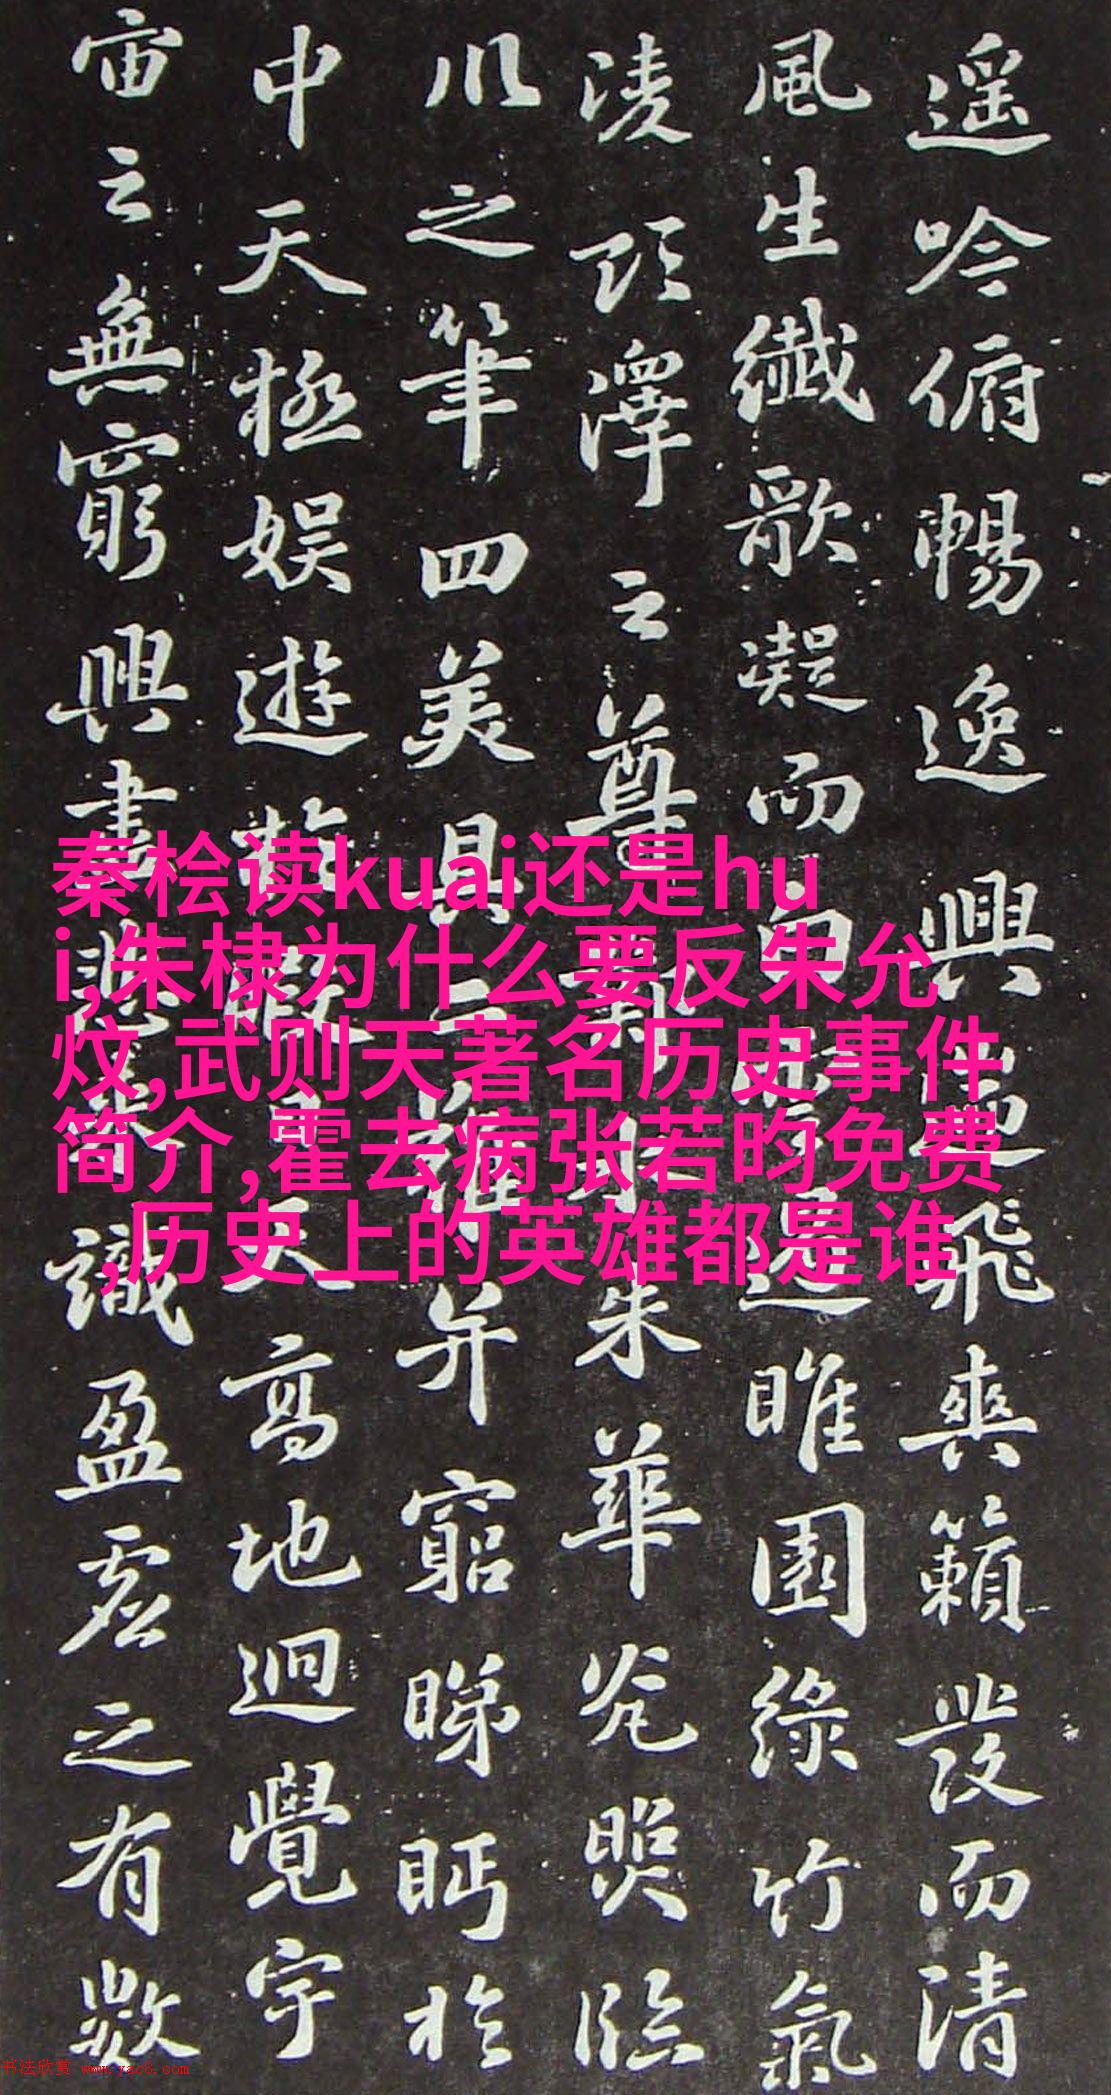 遥吟俯暢逸興遄飛爽籟發而清
風生纖歌凝而白雲遏睢園綠竹氣
淩彭澤之尊鄴水朱華光照臨
川之筆四美具二難并窮睇眄於
中天極娛遊於暇日天高地迥覺宇
宙之無窮興盡悲來識盈虛之有數
秦桧读kuai还是hu
i,朱棣为什么要反朱允
炆,武则天著名历史事件
简介,霍去病张若昀免费
,历史上的英雄都是谁
书法欣赏 www.yac8.com